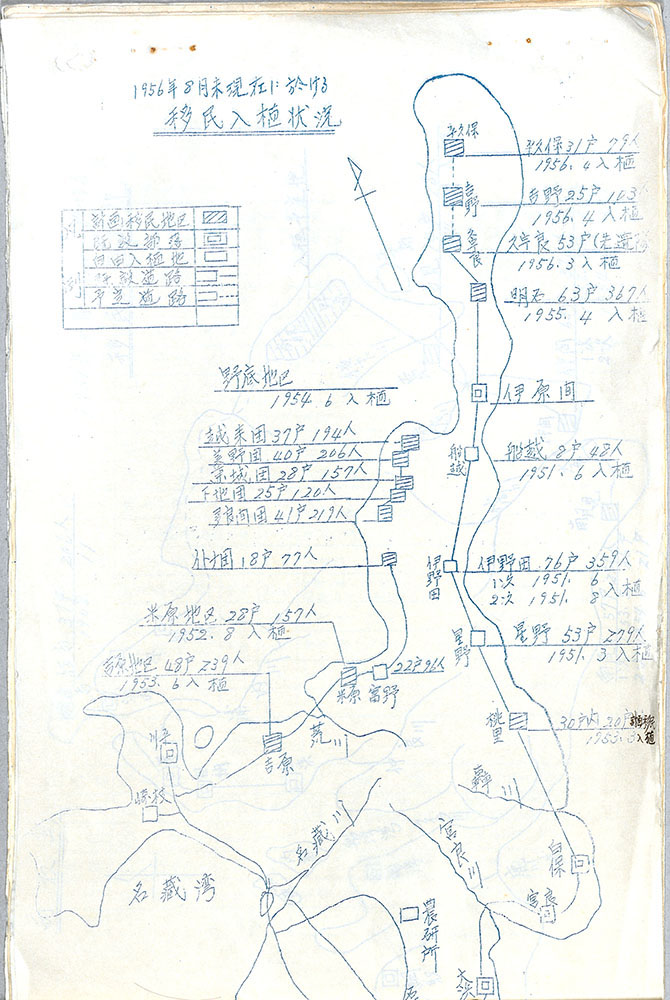 1956年8月末現在に於ける
移民入植状況
計画移民地区
既設部落
自由入植地
既設道路
予定道路
平久保
平久保31戸 79人
1956.4入植
吉野
吉野25戸
1956.4入植
久宇良
久宇良53戸(先遣隊
1956.3入植
明石 63戸 367人
1955.4入植
伊原間
野底地区
1954.6入植
越来団37戸194人
美野団40戸206人
宮城団28戸157人
下地団25戸120人
多良間団41戸219人
船越
船越8戸48人
1951.6入植
18戸77人
伊野田
伊野田76戸359人
1次 1951.6
2次 1951.8入植
米原地区28戸157人
1952.8入植
星野
星野53戸279人
1951.3入植
吉原地区48戸239人
1953.6入植
米原
富野
22戸91人
桃里
30戸内20戸
入植
川平
吉原
荒川
崎枝
轟川
名蔵川
宮良川
白保
名蔵湾
宮良
農研所
大浜